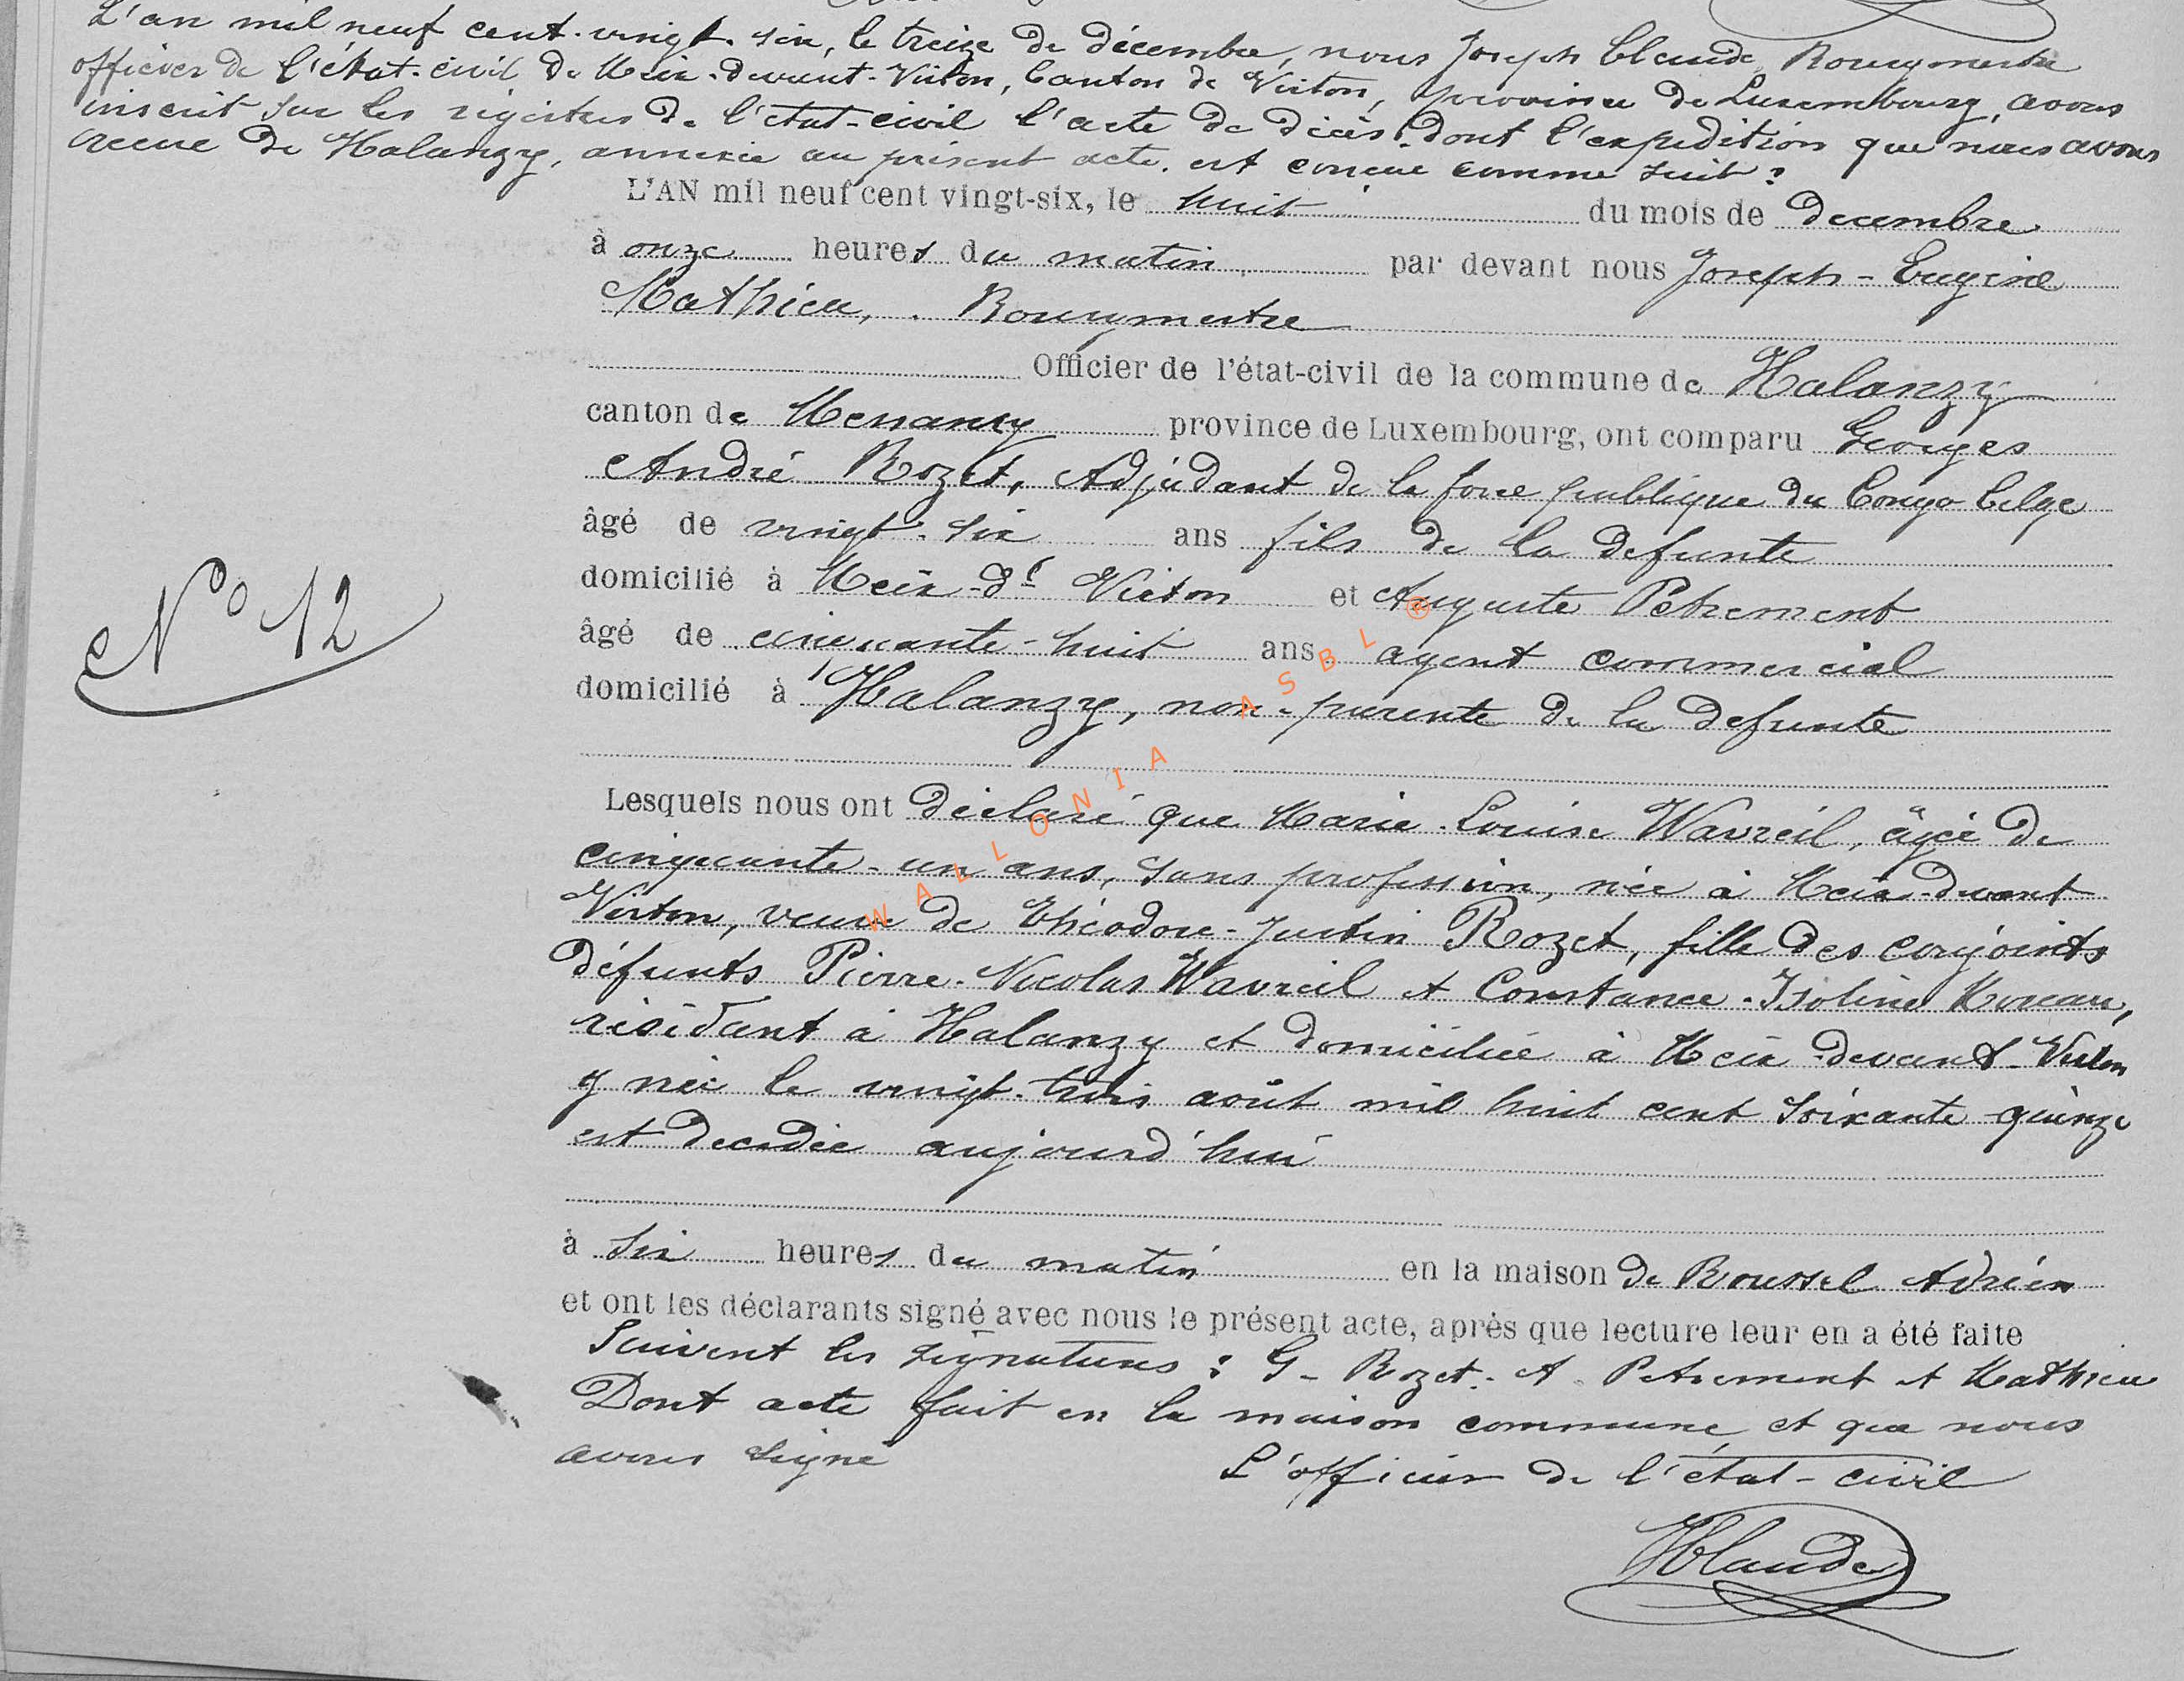 L'an mil neuf cent-vingt-six, le treize de décembre, nous Joseph Claude, Bourgmestre
officier de l'état-civil de Meix-devant-Virton, Canton de Virton, province de Luxembourg, avons
inscrit sur les registres de l'état-civil l'acte de décès dont l'expédition que nous avons
recue de Halanzy, annexée au présent acte, est concue comme suit :
L'AN mil neuf cent vingt-six, le huit du mois de decembre
à onze heures du matin par devant nous Joseph-Eugène
Mathieu, Bourgmestre
Officier de l'état-civil de la commune de Halanzy
canton de Messancy province de Luxembourg, ont comparu Georges
André Rozet, Adjudant de la force publique du Congo belge
âgé de vingt-six ans fils de la defunte
domicilié à Meix-dt Virton et Auguste Petrement
âgé de cinquante-huit ans agent commercial
domicilié à Halanzy, non-parente de la defunte
Lesquels nous ont déclaré que Marie-Louise Wavreil, âgée de
cinquante-un ans, sans profession, née à Meix-devant
Virton, veuve de Théodore-Justin Rozet, fille des conjoints
défunts Pierre-Nicolas Wavreil et Constance-Isoline Moreau,
résidant à Halanzy et domiciliée à Meix-devant-Virton
y née le vingt-trois août mil huit cent soixante-quinze
est decedée aujourd'hui
à six heures du matin en la maison de Roussel Adrien
et ont les déclarants signé avec nous le présent acte, après que lecture leur en a été faite
Suivent les signatures : G-Rozet-A-Petrement et Mathieu
Dont acte fait en la maison commune et que nous
avons signé L'officier de l'état-civil
JClaude
N° 12
WALLONIA ASBL ®